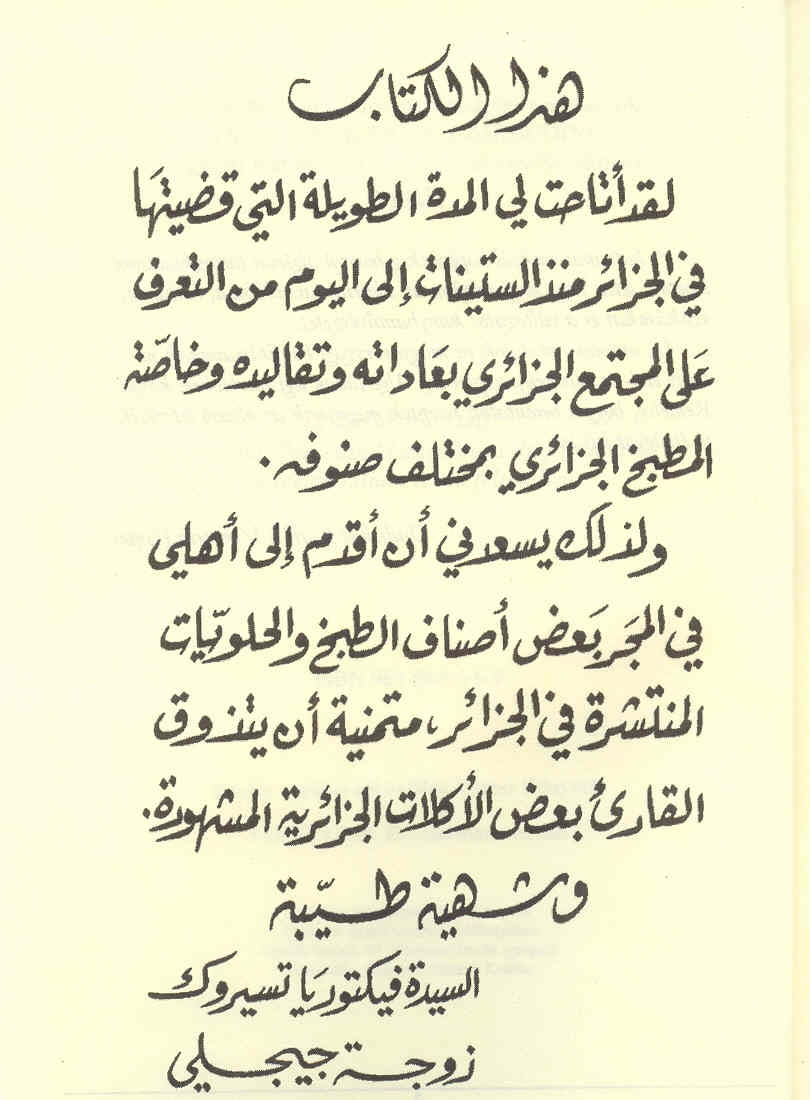 هذا الكتاب
لقد أتاحت لي المدة الطويلة التي قضيتها
في الجزائر منذ الستينات إلى اليوم من التعرف
عَلى المجتمع الجزائري بعَاداته وتقاليده وخاصّة
المطبخ الجزائري بمختلف صنوفه.
ولذلك يسعدني أن أقدم إلى أهلي
في المجَر بَعض أصناف الطبخ والحلويّات
المنتشرة في الجزائر، متمنية أن يتذوق
القارئ بعض الأكلات الجزائرية المشهورة.
وشهية طيّبة
السيدة فيكتوريَا تسيروك
زوجة جيجلي